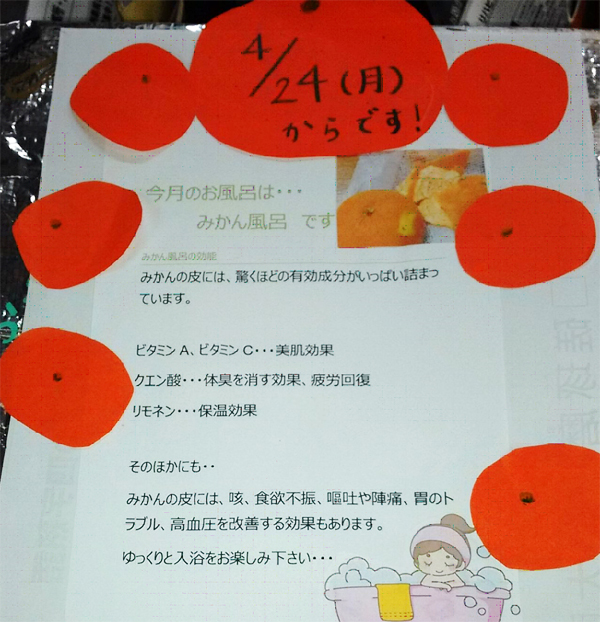 4/24(月)
からです!
今月のお風呂は・・・
みかん風呂 です
みかん風呂の効能
みかんの皮には、驚くほどの有効成分がいっぱい詰まっ
ています。
ビタミン A、ビタミン C・・・美肌効果
クエン酸・・・体臭を消す効果、疲労回復
リモネン・・・保温効果
そのほかにも・・
みかんの皮には、咳、食欲不振、嘔吐や陣痛、胃のト
ラブル、高血圧を改善する効果もあります。
ゆっくりと入浴をお楽しみ下さい・・・